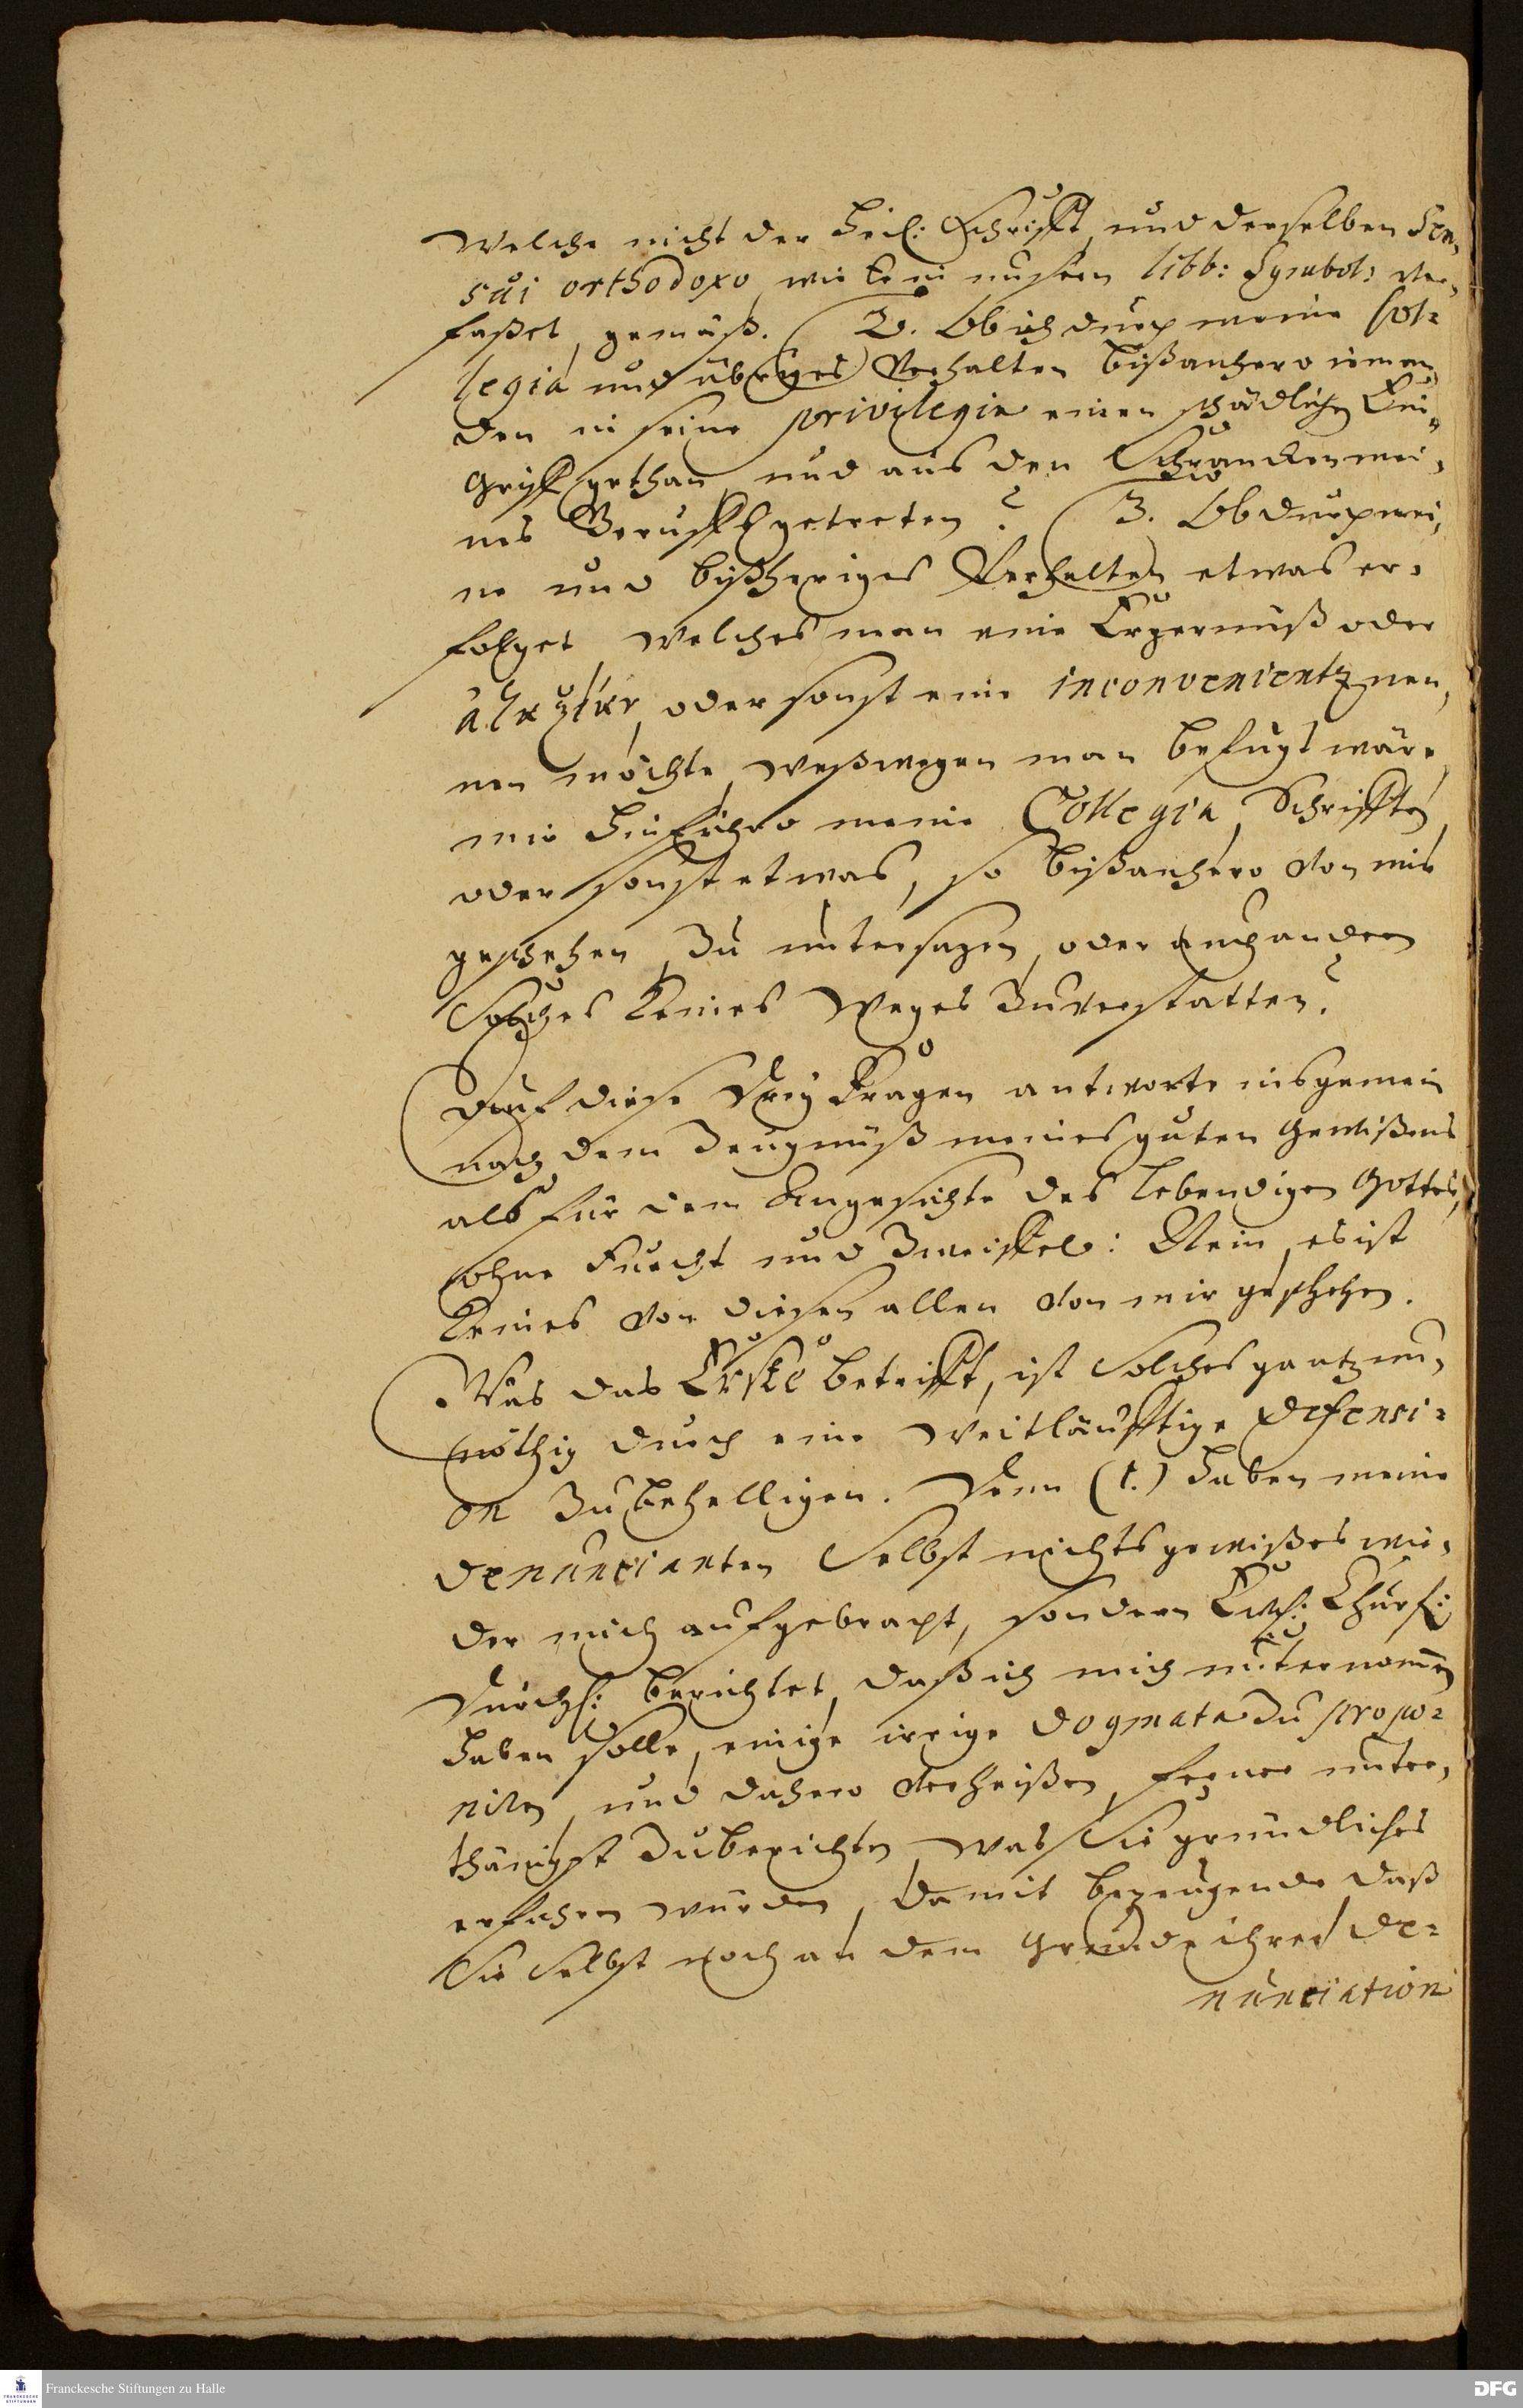 welche nicht der Heil: Schrifft, und derselben Sen-
sui orthodoxo, wie Er in unsern libb: Symbol: ver-
faßet, gemäß. 2. Ob ich durch meine Col-
legia und übriges Verhalten bißanhero ieman-
den in seine privilegia einen schädlichen Ein-
griff gethan, und aus den Schrancken mei-
nes Beruffs getreten? 3. Ob durch mei-
ne und bißheriges Verhalten etwas er-
folget, welches man eine Ärgernüß oder
oder sonst eine inconvenientz nen-
nen möchte, weßwegen man befugt wäre,
mir hinführo meine Collegia, Schrifften,
oder sonst etwas, so bißanhero von mir
geschehen, zu untersagen, oder auch andern
solches keines weges zuverstatten?
Auf diese drey Fragen antworte insgemein
nach dem Zeugnüß meines guten Gewißens
als für dem Angesichte des lebendigen Gottes,
ohne Furcht und Zweiffel: Nein, es ist
keines von diesen allen von mir geschehen.
Was das Erste betrifft, ist solches gantz un-
nöthig durch eine weitläufftige Defensi-
on zu behelligen. Denn (1.) haben meine
Denuncianten selbst nichts gewißes wie-
der mich aufgebracht, sondern Ew: Churf:
Durchl: berichtet, daß ich mich unternommen
haben solle, einige irrige Dogmata zu propo-
niren, und dahero verheißen, ferner unter-
thänigst zu berichten, was sie gründliches
erfahren würden, damit bezeugende, daß
sie selbst noch an dem Grunde ihrer De-
nunciation
Franckesche Stiftungen zu Halle
FRANCKESCHE STIFTUNGEN
DFG